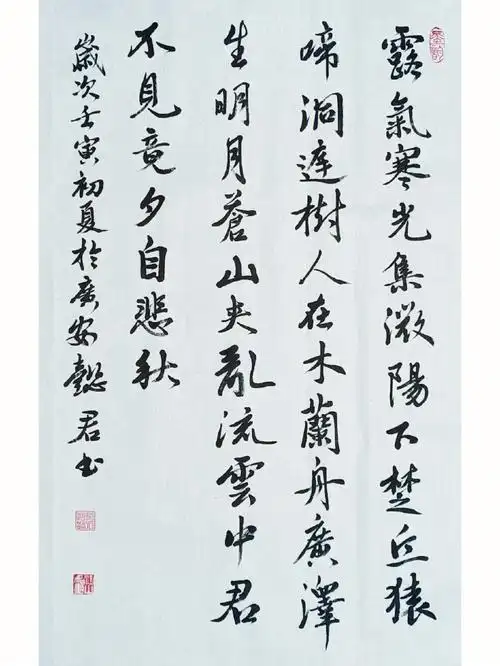 露氣寒光集微陽下楚丘猿
啼洞庭樹人在木蘭舟廣澤
生明月蒼山夾亂流雲中君
不見竟夕自悲秋
歲次壬寅初夏於廣安懿君書